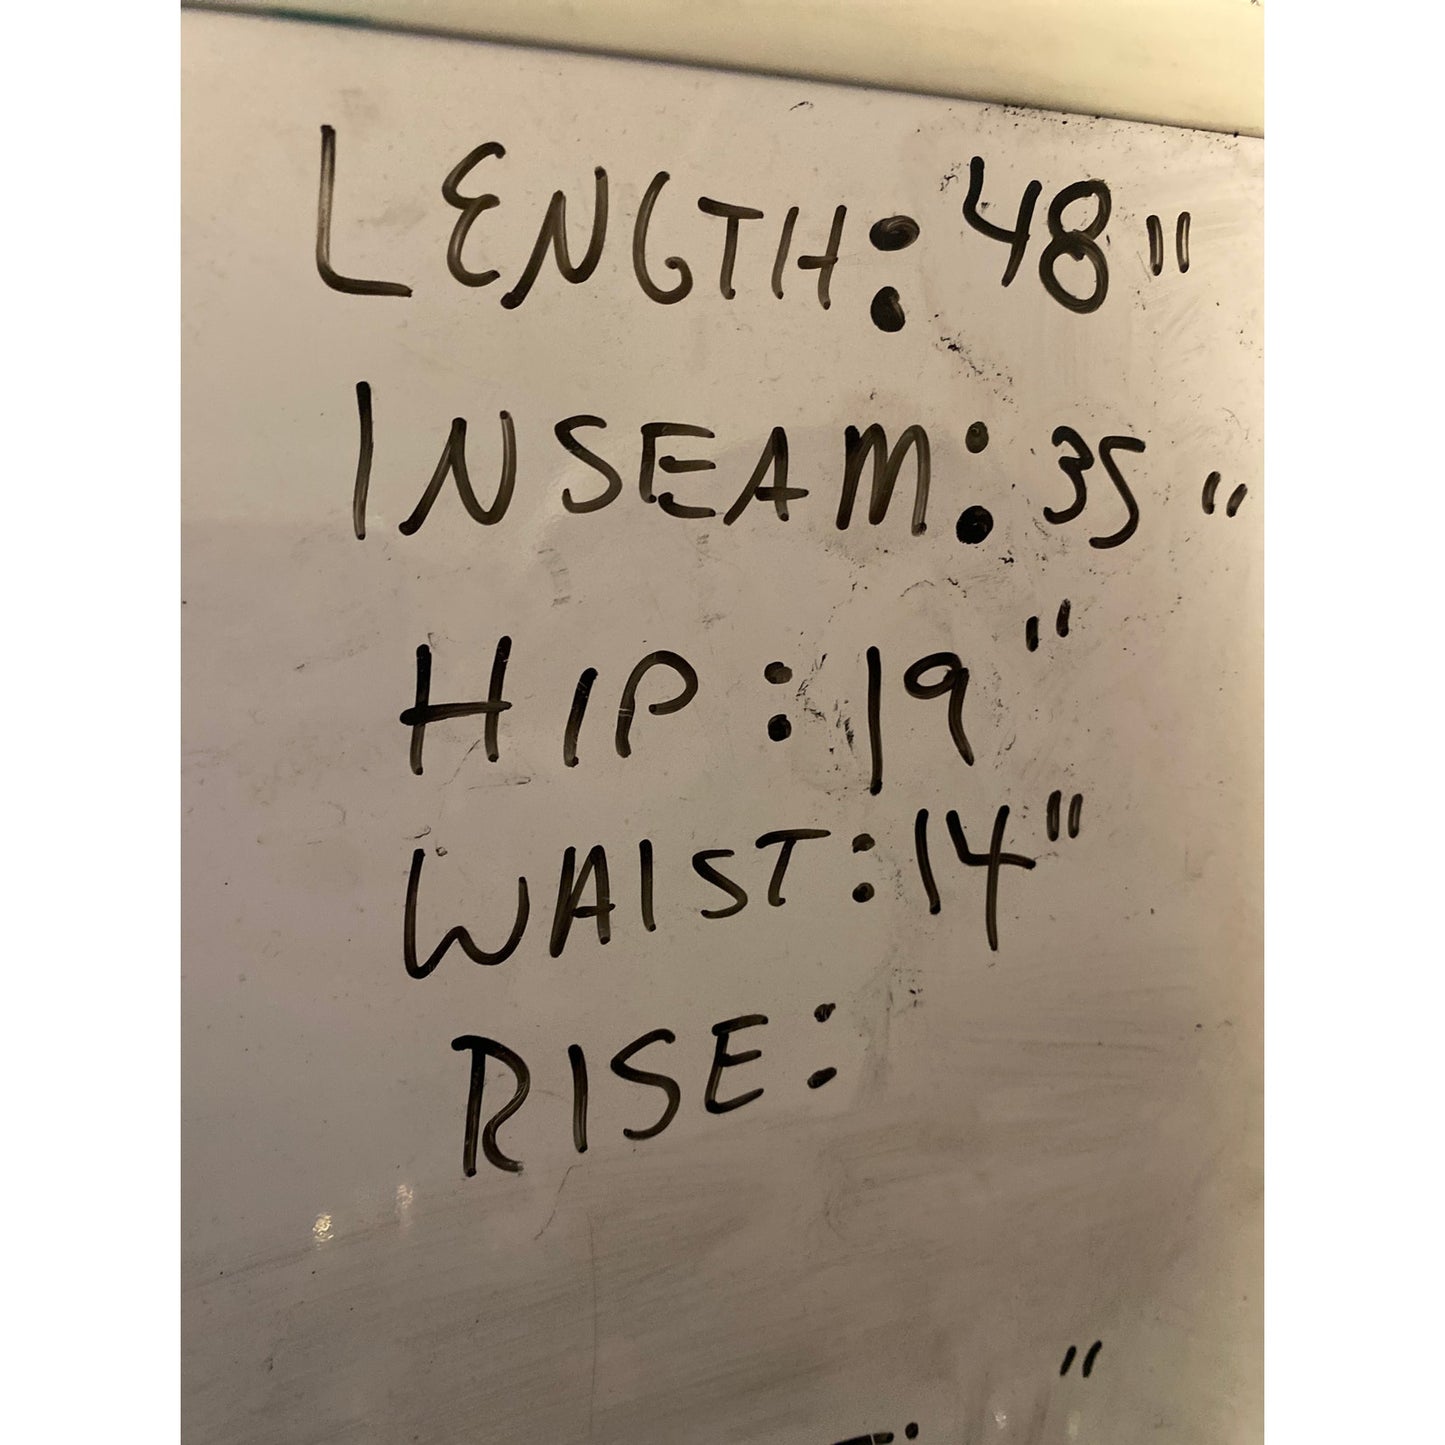 LENGTH: 48"
INSEAM: 35"
HIP: 19"
WAIST: 14"
RISE:
"